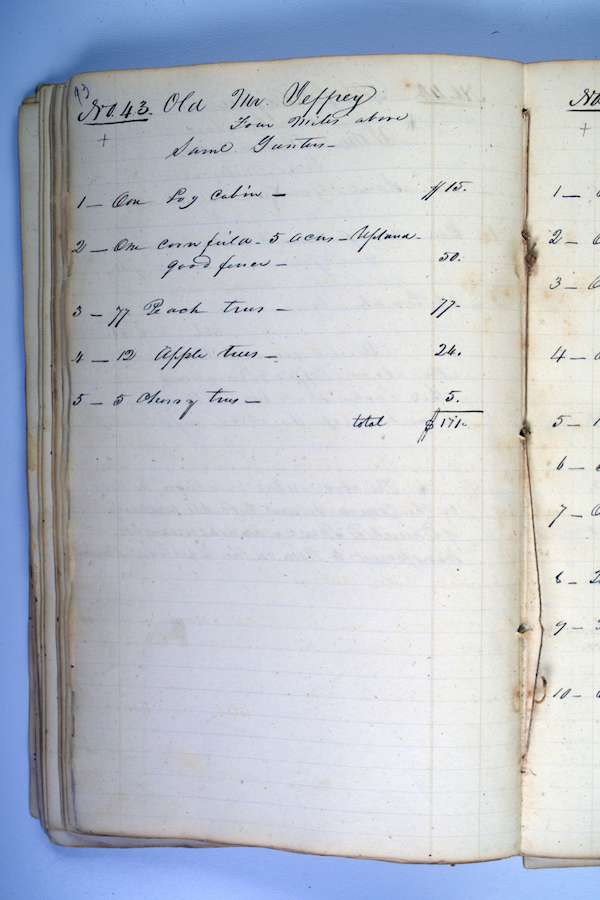 93
No. 43. Old Mr. Jeffrey
Four Miles above
Saml Gunters —
1 — One Log Cabin — $15.
2 — One cornfield - 5 acres — Upland -
good fence — 50.
3 — 77 Peach trees — 77 -
4 — 12 Apple trees — 24.
5 — 5 Cherry trees — 5.
total $171.
No
1 —
2 —
3 —
4 —
5 —
6 —
7 —
8 —
9 —
10 —